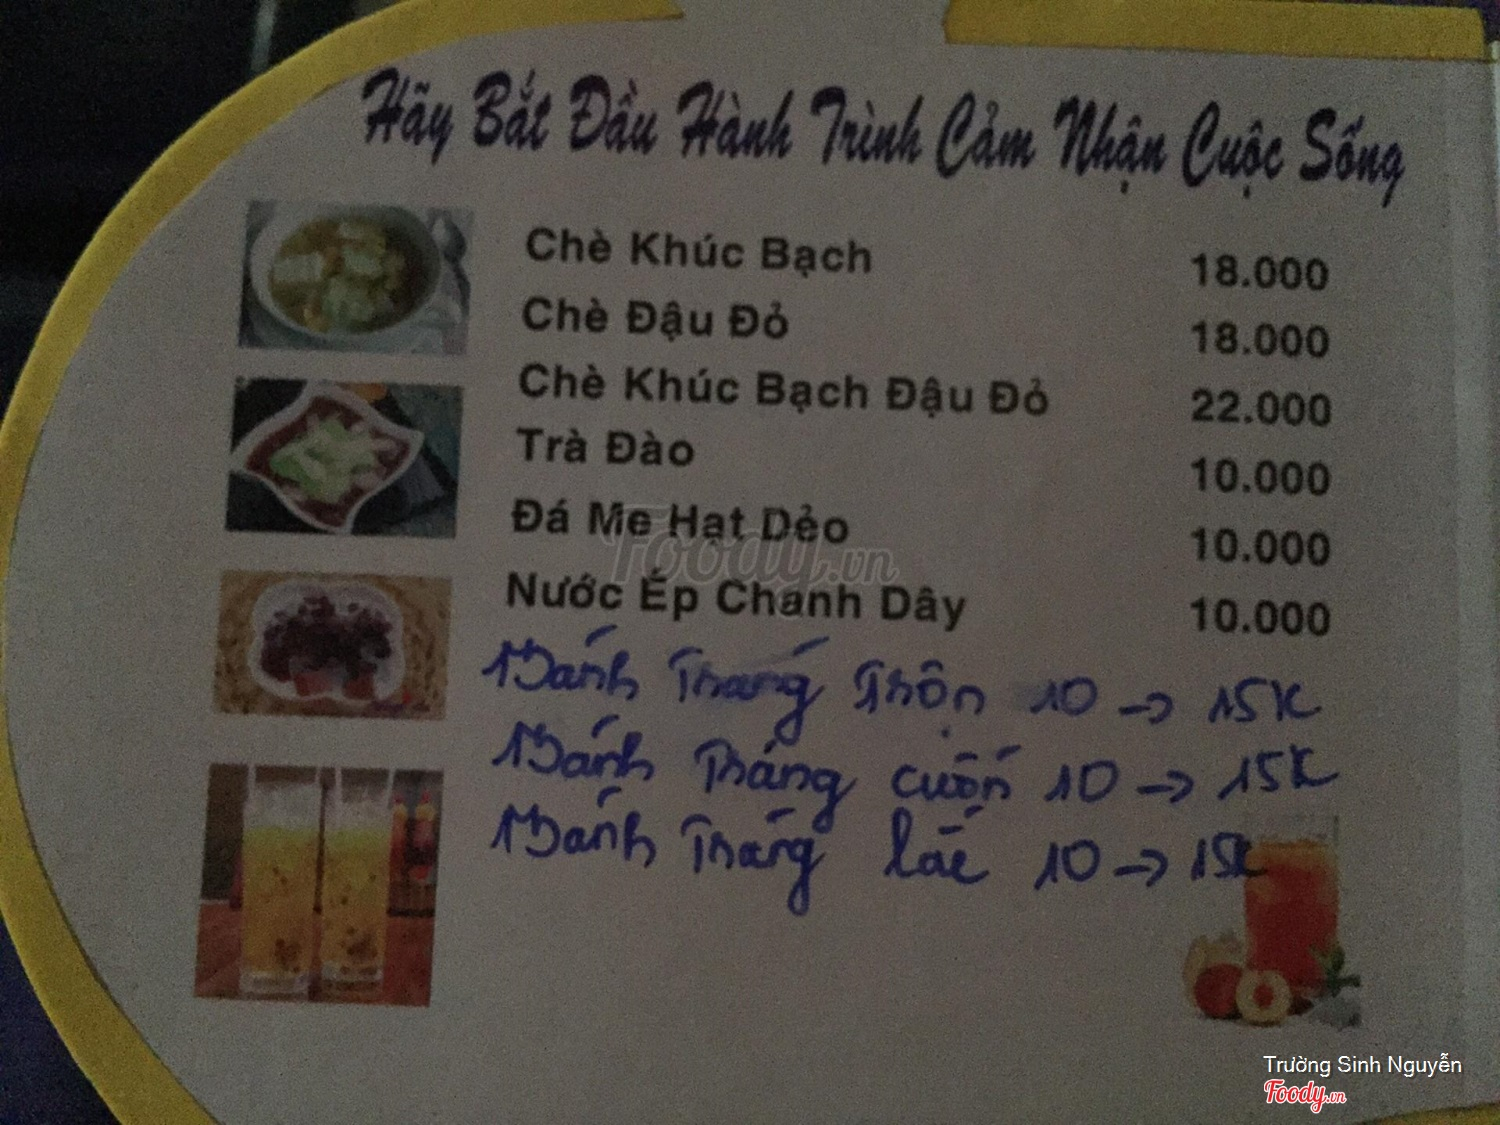 Hãy Bắt Đầu Hành Trình Cảm Nhận Cuộc Sống
Chè Khúc Bạch 18.000
Chè Đậu Đỏ 18.000
Chè Khúc Bạch Đậu Đỏ 22.000
Trà Đào 10.000
Đá Me Hạt Dẻo 10.000
Nước Ép Chanh Dây 10.000
Bánh Tráng Trộn 10 → 15K
Bánh Tráng cuốn 10 → 15K
Bánh Tráng lắc 10 → 15K
Foody.vn
Trường Sinh Nguyễn
Foody.vn